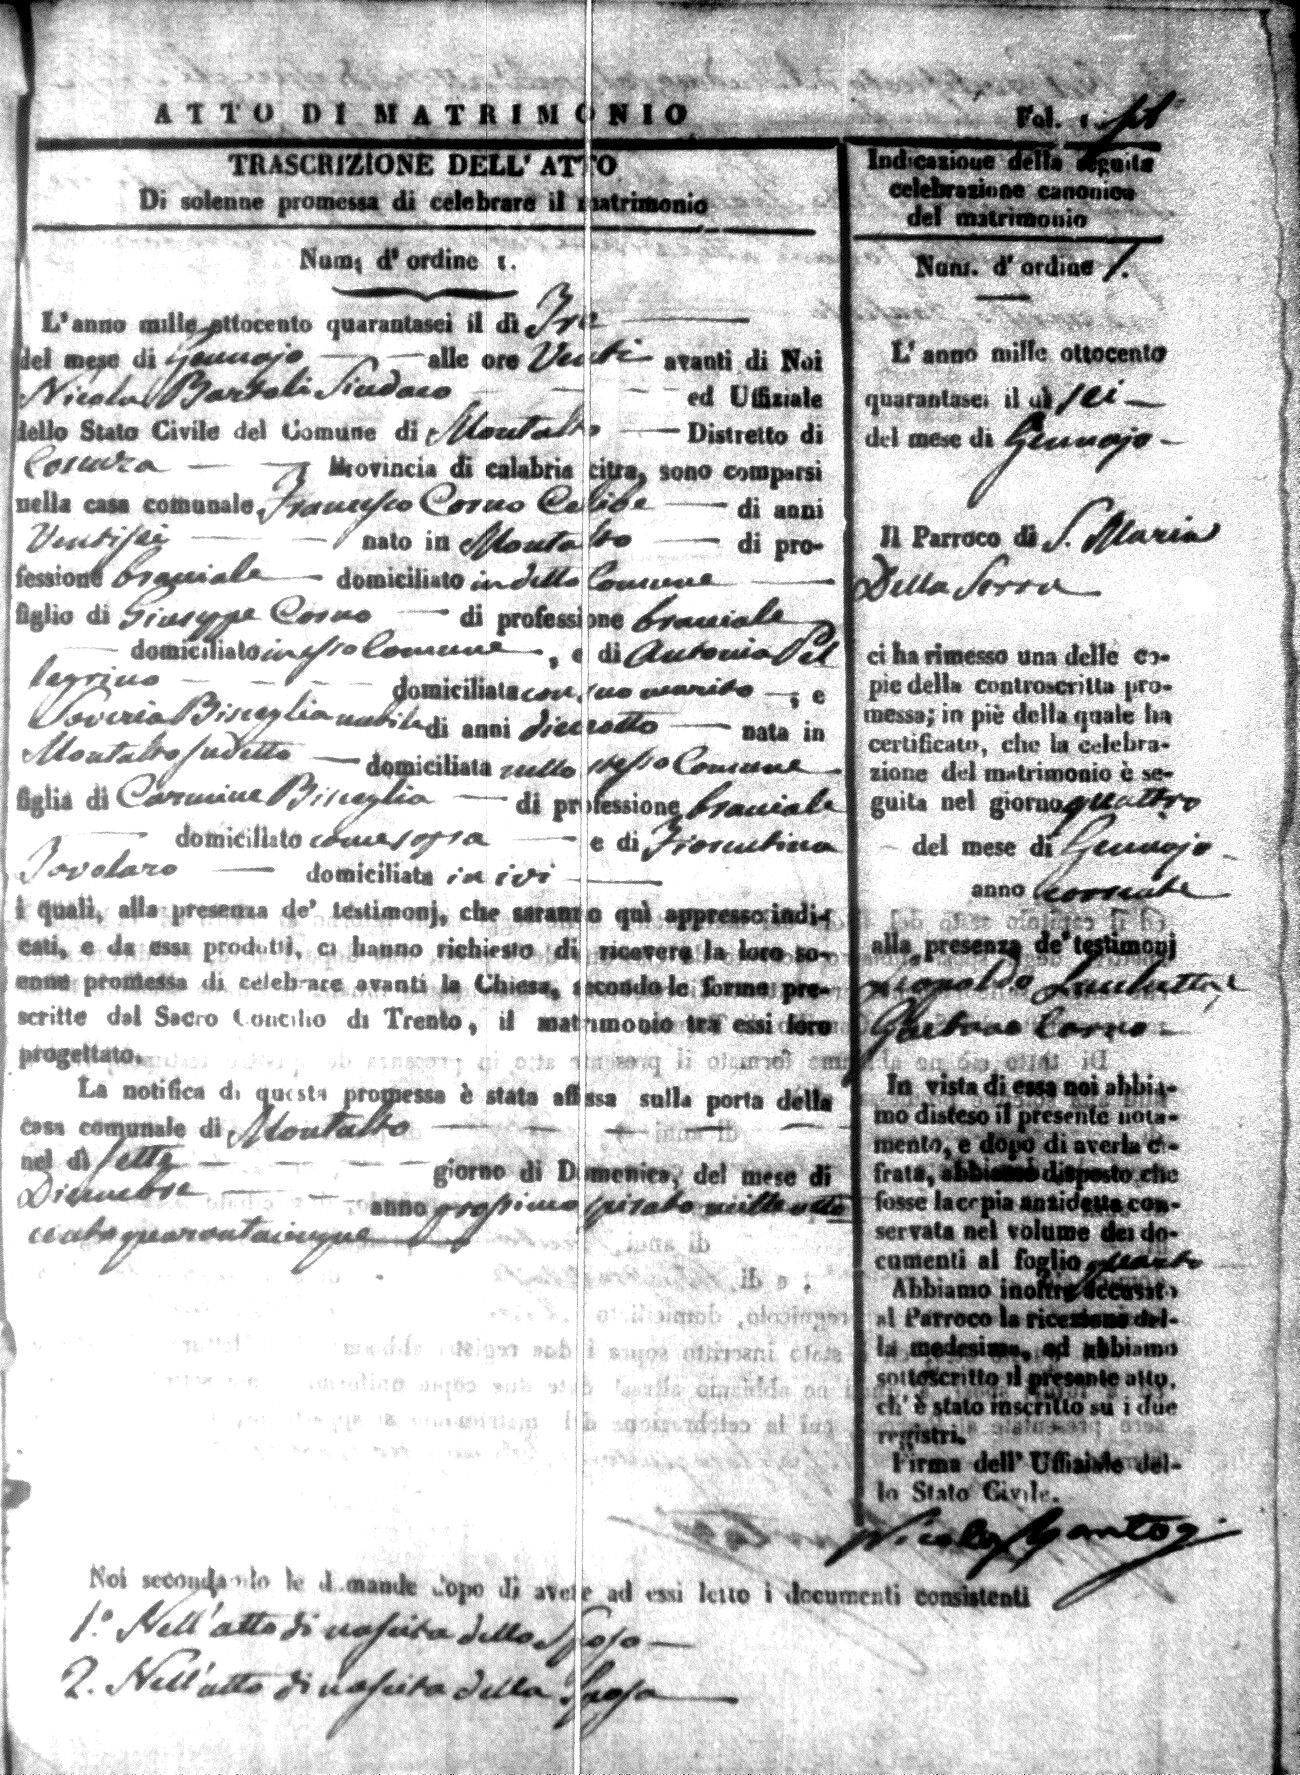 ATTO DI MATRIMONIO
Fol. 1
TRASCRIZIONE DELL' ATTO
Di solenne promessa di celebrare il matrimonio
Num. d' ordine 1.
L'anno mille ottocento quarantasei il dì Tre
del mese di Gennajo alle ore Venti avanti di Noi
Nicola Bartoli Sindaco ed Uffiziale
dello Stato Civile del Comune di Montalto Distretto di
Cosenza Provincia di calabria citra, sono comparsi
nella casa comunale Francesco Corno Celibe di anni
Ventisei nato in Montalto di pro-
fessione braciale domiciliato in detto Comune
figlio di Giuseppe Corno di professione braciale
domiciliato in esso Comune, e di Antonia Pel
legrino domiciliata con suo marito, e
Saveria Bisceglia nubile di anni dieciotto nata in
Montalto sudetto domiciliata nello stesso Comune
figlia di Carmine Bisceglia di professione braciale
domiciliato come sopra e di Fiorentina
Tovolaro domiciliata in ivi
i quali, alla presenza de' testimonj, che saranno quì appresso indi-
cati, e da essi prodotti, ci hanno richiesto di ricevere la loro so-
enne promessa di celebrare avanti la Chiesa, secondo le forme pre-
scritte dal Sacro Concilio di Trento, il matrimonio tra essi loro
progettato.
La notifica di questa promessa è stata affissa sulla porta della
casa comunale di Montalto
nel dì sette giorno di Domenica, del mese di
Dicembre anno prossimo spirato mille otto
cento quarantacinque
Indicazione della seguita
celebrazione canonica
del matrimonio
Num. d' ordine 1.
L' anno mille ottocento
quarantasei il dì sei
del mese di Gennajo
Il Parroco di S. Maria
Della Serra
ci ha rimesso una delle co-
pie della controscritta pro-
messa; in piè della quale ha
certificato, che la celebra-
zione del matrimonio è se-
guita nel giorno quattro
del mese di Gennajo
anno corrente
alla presenza de' testimonj
Leopoldo
Gaetano Corno
In vista di essa noi abbia-
mo disteso il presente nota-
mento, e dopo di averla ci-
frata, abbiamo disposto che
fosse la copia anzidetta con-
servata nel volume dei do-
cumenti al foglio quarto
Abbiamo inoltre accusato
al Parroco la ricezione del-
la medesima, ed abbiamo
sottoscritto il presente atto,
ch' è stato inscritto su i due
registri.
Firma dell' Uffiziale del-
lo Stato Civile.
Nicola
Noi secondando le dimande dopo di avere ad essi letto i documenti consistenti
1.° Nell' atto di nascita dello Sposo
2. Nell' atto di nascita della Sposa